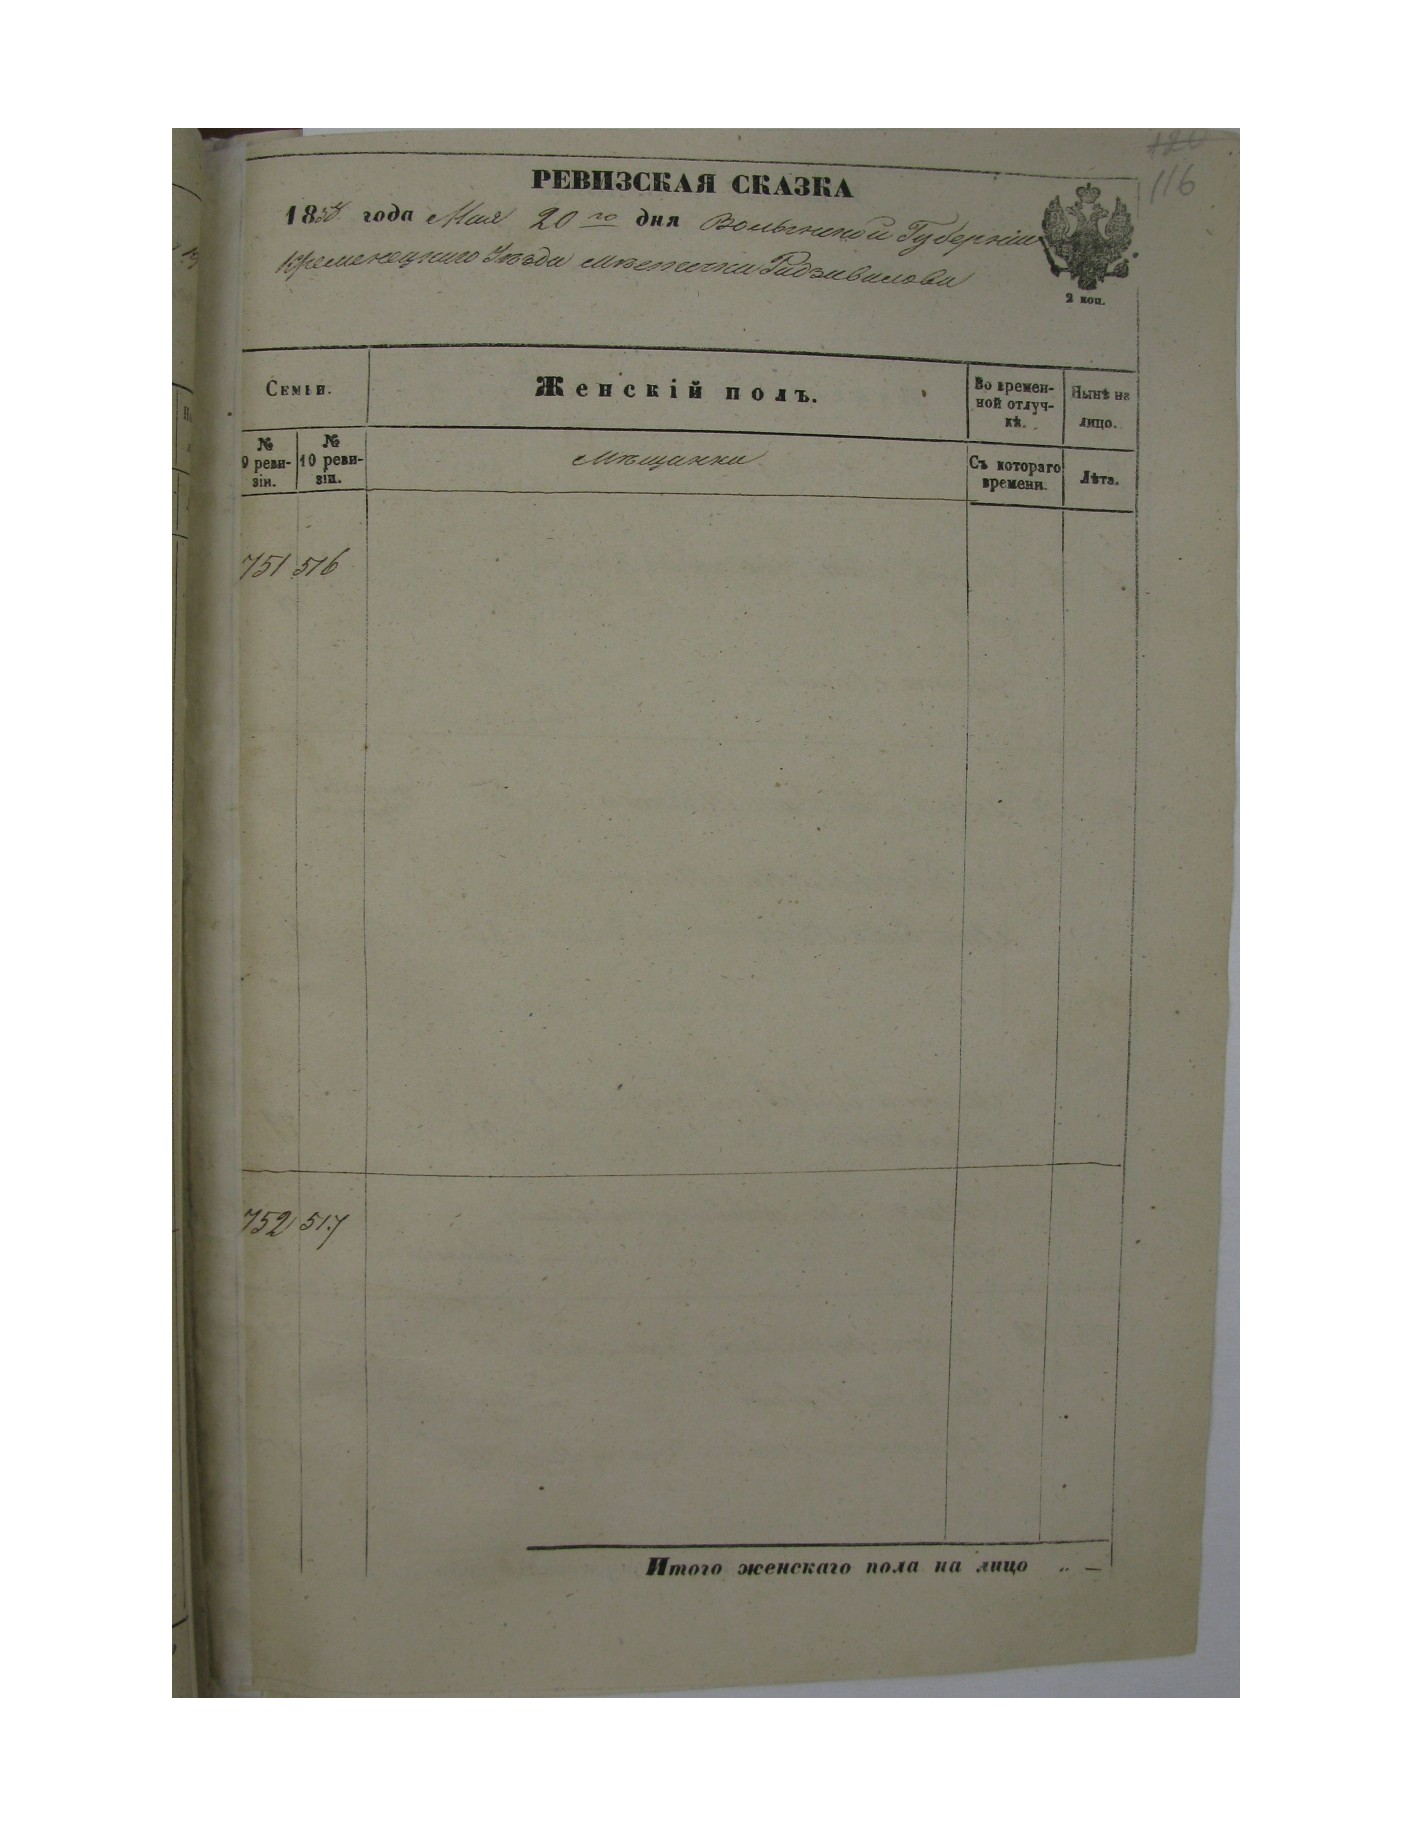 120
116
РЕВИЗСКАЯ СКАЗКА
1858 года Мая 20 го дня Волынской Губерніи
Кременецкаго Уѣзда мѣстечка Радзивилова
2 коп.
Семьи.
Женскій полъ.
Во времен-
ной отлуч-
кѣ.
Нынѣ на
лицо.
№
9 реви-
зіи.
№
10 реви-
зіи.
Мѣщанки
Съ котораго
времени.
Лѣта.
751 516
752 517
Итого женскаго пола на лицо „ —